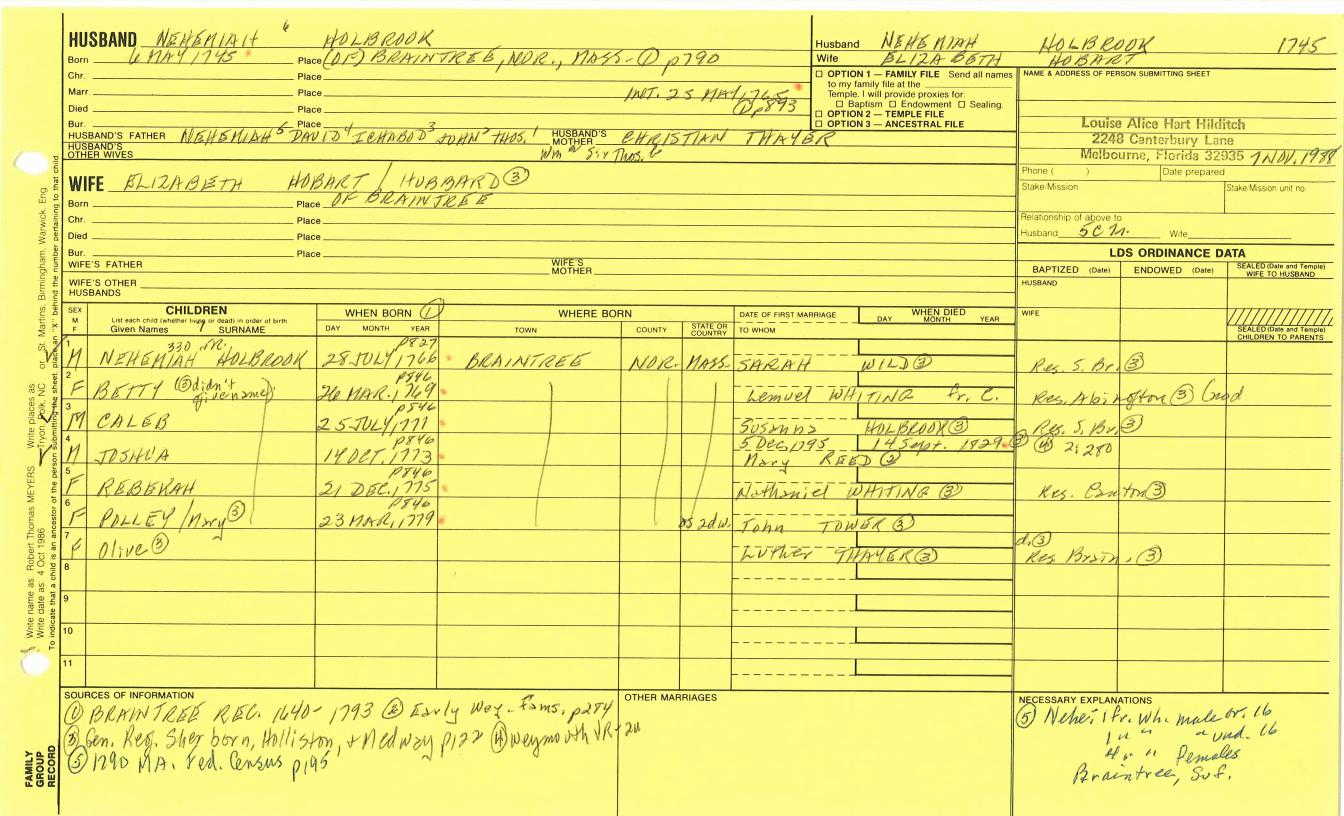 HUSBAND NEHEMIAH 6 HOLBROOK
Born 6 MAY 1745 Place (OF) BRAINTREE, NOR., MASS - ① p790
Chr. Place
Marr Place INT. 25 MAY, 1765
Died Place ① p893
Bur. Place
HUSBAND'S FATHER NEHEMIAH 5 DAVID 4 ICHABOD 3 JOHN 2 THOS. 1 HUSBAND'S MOTHER CHRISTIAN THAYER
HUSBAND'S OTHER WIVES
Husband NEHEMIAH HOLBROOK 1745
Wife ELIZABETH HOBART
☐ OPTION 1 — FAMILY FILE Send all names
to my family file at the
Temple. I will provide proxies for:
☐ Baptism ☐ Endowment ☐ Sealing.
☐ OPTION 2 — TEMPLE FILE
☐ OPTION 3 — ANCESTRAL FILE
NAME & ADDRESS OF PERSON SUBMITTING SHEET
Louise Alice Hart Hilditch
2248 Canterbury Lane
Melbourne, Florida 32935 7 NOV. 1988
Phone ( ) Date prepared
Stake/Mission Stake/Mission unit no.
Relationship of above to
Husband 5C Wife
WIFE ELIZABETH HOBART / HUBBARD ③
Born Place OF BRAINTREE
Chr. Place
Died Place
Bur. Place
WIFE'S FATHER WIFE'S MOTHER
WIFE'S OTHER HUSBANDS
LDS ORDINANCE DATA
BAPTIZED (Date) ENDOWED (Date) SEALED (Date and Temple) WIFE TO HUSBAND
HUSBAND
WIFE
SEALED (Date and Temple) CHILDREN TO PARENTS
SEX M F CHILDREN WHEN BORN ① WHERE BORN DATE OF FIRST MARRIAGE WHEN DIED
List each child (whether living or dead) in order of birth
Given Names SURNAME DAY MONTH YEAR TOWN COUNTY STATE OR COUNTRY TO WHOM DAY MONTH YEAR
1 M NEHEMIAH HOLBROOK 28 JULY, 1766 p827 BRAINTREE NOR. MASS. SARAH WILD ③ Res. S. Br. ③
2 F BETTY (③ didn't give name) 26 MAR. 1769 p846 Lemuel WHITING Res. Abington ③
3 M CALEB 25 JULY, 1771 p846 Susanna HOLBROOK ③ Res. S. Br. ③
4 M JOSHUA 14 OCT. 1773 p846 5 Dec, 1795 14 Sept. 1829 Mary REED ② ④ 2:280
5 F REBEKAH 21 DEC. 1775 p846 Nathaniel WHITING ③ Res. Canton ③
6 F POLLEY / Mary ③ 23 MAR, 1779 p846 as 2d w. John TOWER ③
7 F Olive ③ Luther THAYER ③ d. ③ Res Brain. ③
8
9
10
11
SOURCES OF INFORMATION
① BRAINTREE REC. 1640-1793 ② Early Wey. Fams. p284
③ Gen. Reg. Sherborn, Holliston, + Medway p122 ④ Weymouth VR
⑤ 1790 MA. Fed. Census p195
OTHER MARRIAGES
NECESSARY EXPLANATIONS
⑤ Nehe: 1 fr. wh. male ov. 16
1 " " " und. 16
4 " " Females
Braintree, Suf.
FAMILY GROUP RECORD
Write name as Robert Thomas MEYERS. Write places as Tryon, Polk, NC or St. Martins, Birmingham, Warwick, Eng.
Write date as 4 Oct 1986
To indicate that a child is an ancestor of the person submitting the sheet, place an "X" behind the number pertaining to that child